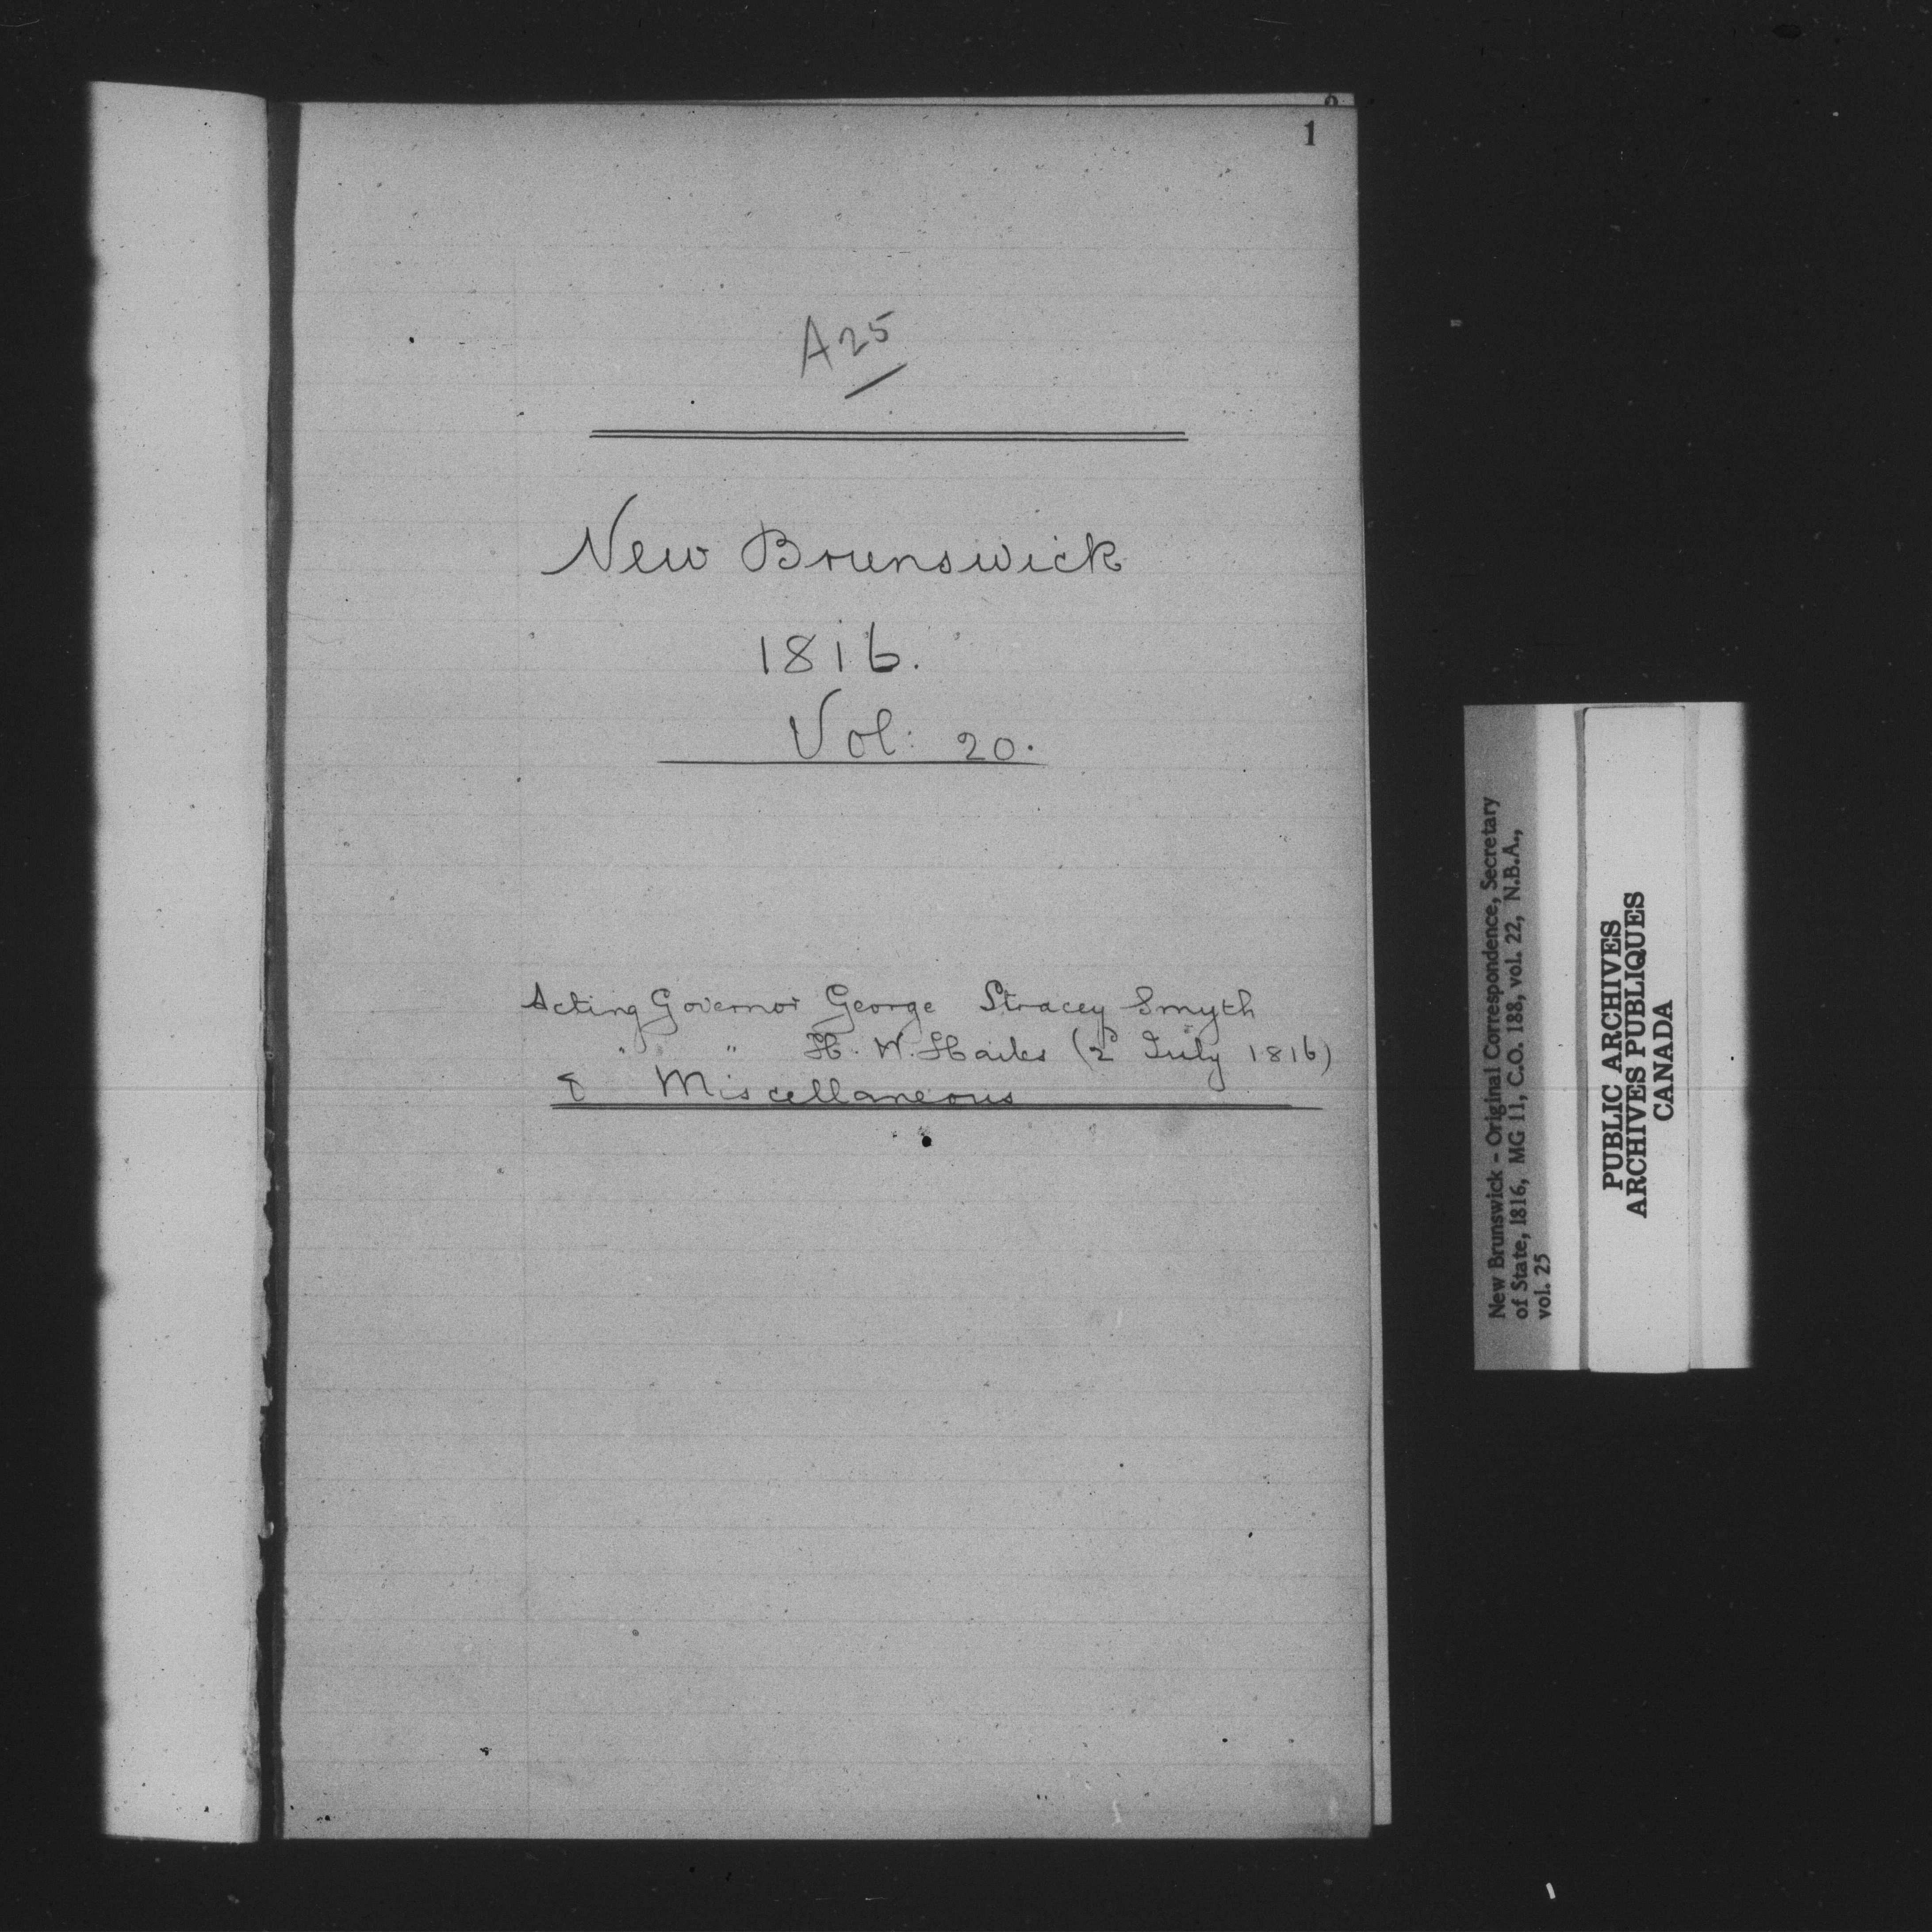 1
A 25
New Brunswick
1816.
Vol: 20.
Acting Governor George Stracey Smyth
" " H. W. Hailes (2 July 1816)
& Miscellaneous
New Brunswick - Original Correspondence, Secretary
of State, 1816, MG 11, C.O. 188, vol. 22, N.B.A.,
vol. 25
PUBLIC ARCHIVES
ARCHIVES PUBLIQUES
CANADA